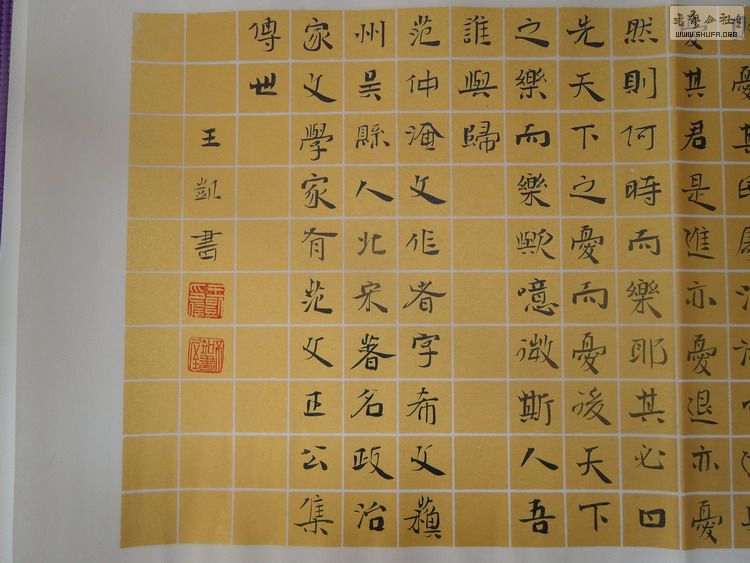 憂其君是進亦憂退亦憂
然則何時而樂耶其必曰
先天下之憂而憂後天下
之樂而樂歟噫微斯人吾
誰與歸
范仲淹文作者字希文蘇
州吳縣人北宋著名政治
家文學家有范文正公集
傳世
王凱書
WWW.SHUFA.ORG